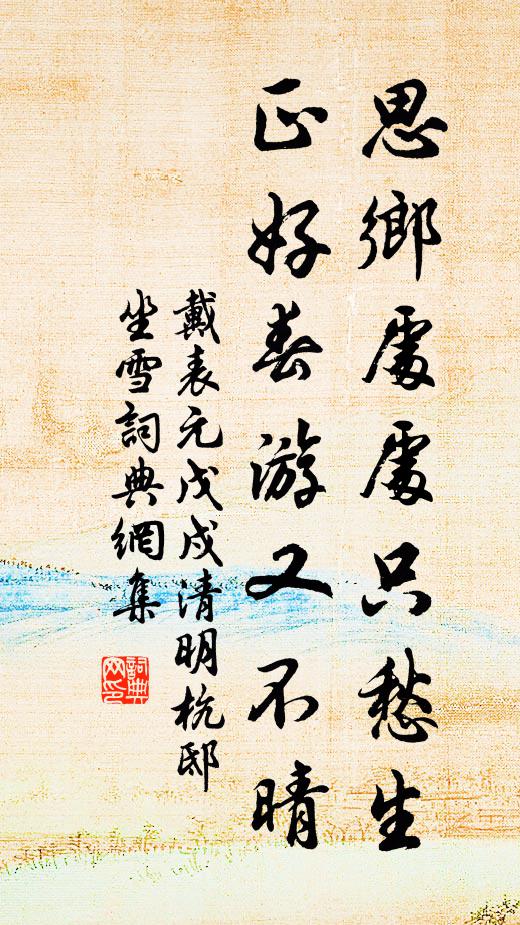 思鄉處處只愁生
正好春游又不晴
戴表元戊戌清明杭邸
坐雪詞典網集
詞典
网印